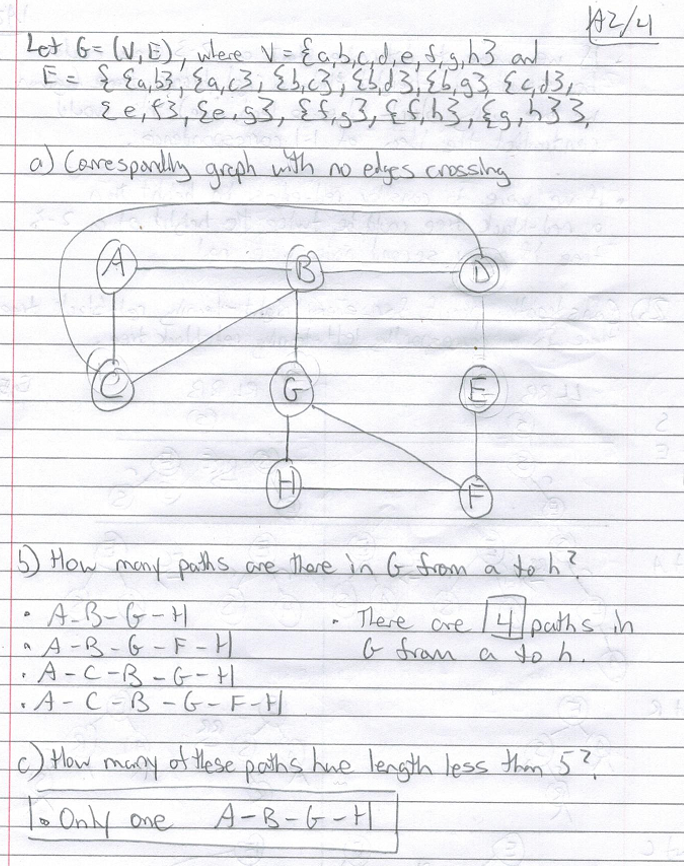 A2/4
Let G = (V, E), where V = {a,b,c,d,e,f,g,h} and
E = { {a,b}, {a,c}, {b,c}, {b,d}, {b,g}, {c,d},
{e,f}, {e,g}, {f,g}, {f,h}, {g,h} }.
a) Corresponding graph with no edges crossing
A B D
C G E
H F
b) How many paths are there in G from a to h?
• A-B-G-H • There are 4 paths in
• A-B-G-F-H G from a to h.
• A-C-B-G-H
• A-C-B-G-F-H
c) How many of these paths have length less than 5?
• Only one A-B-G-H